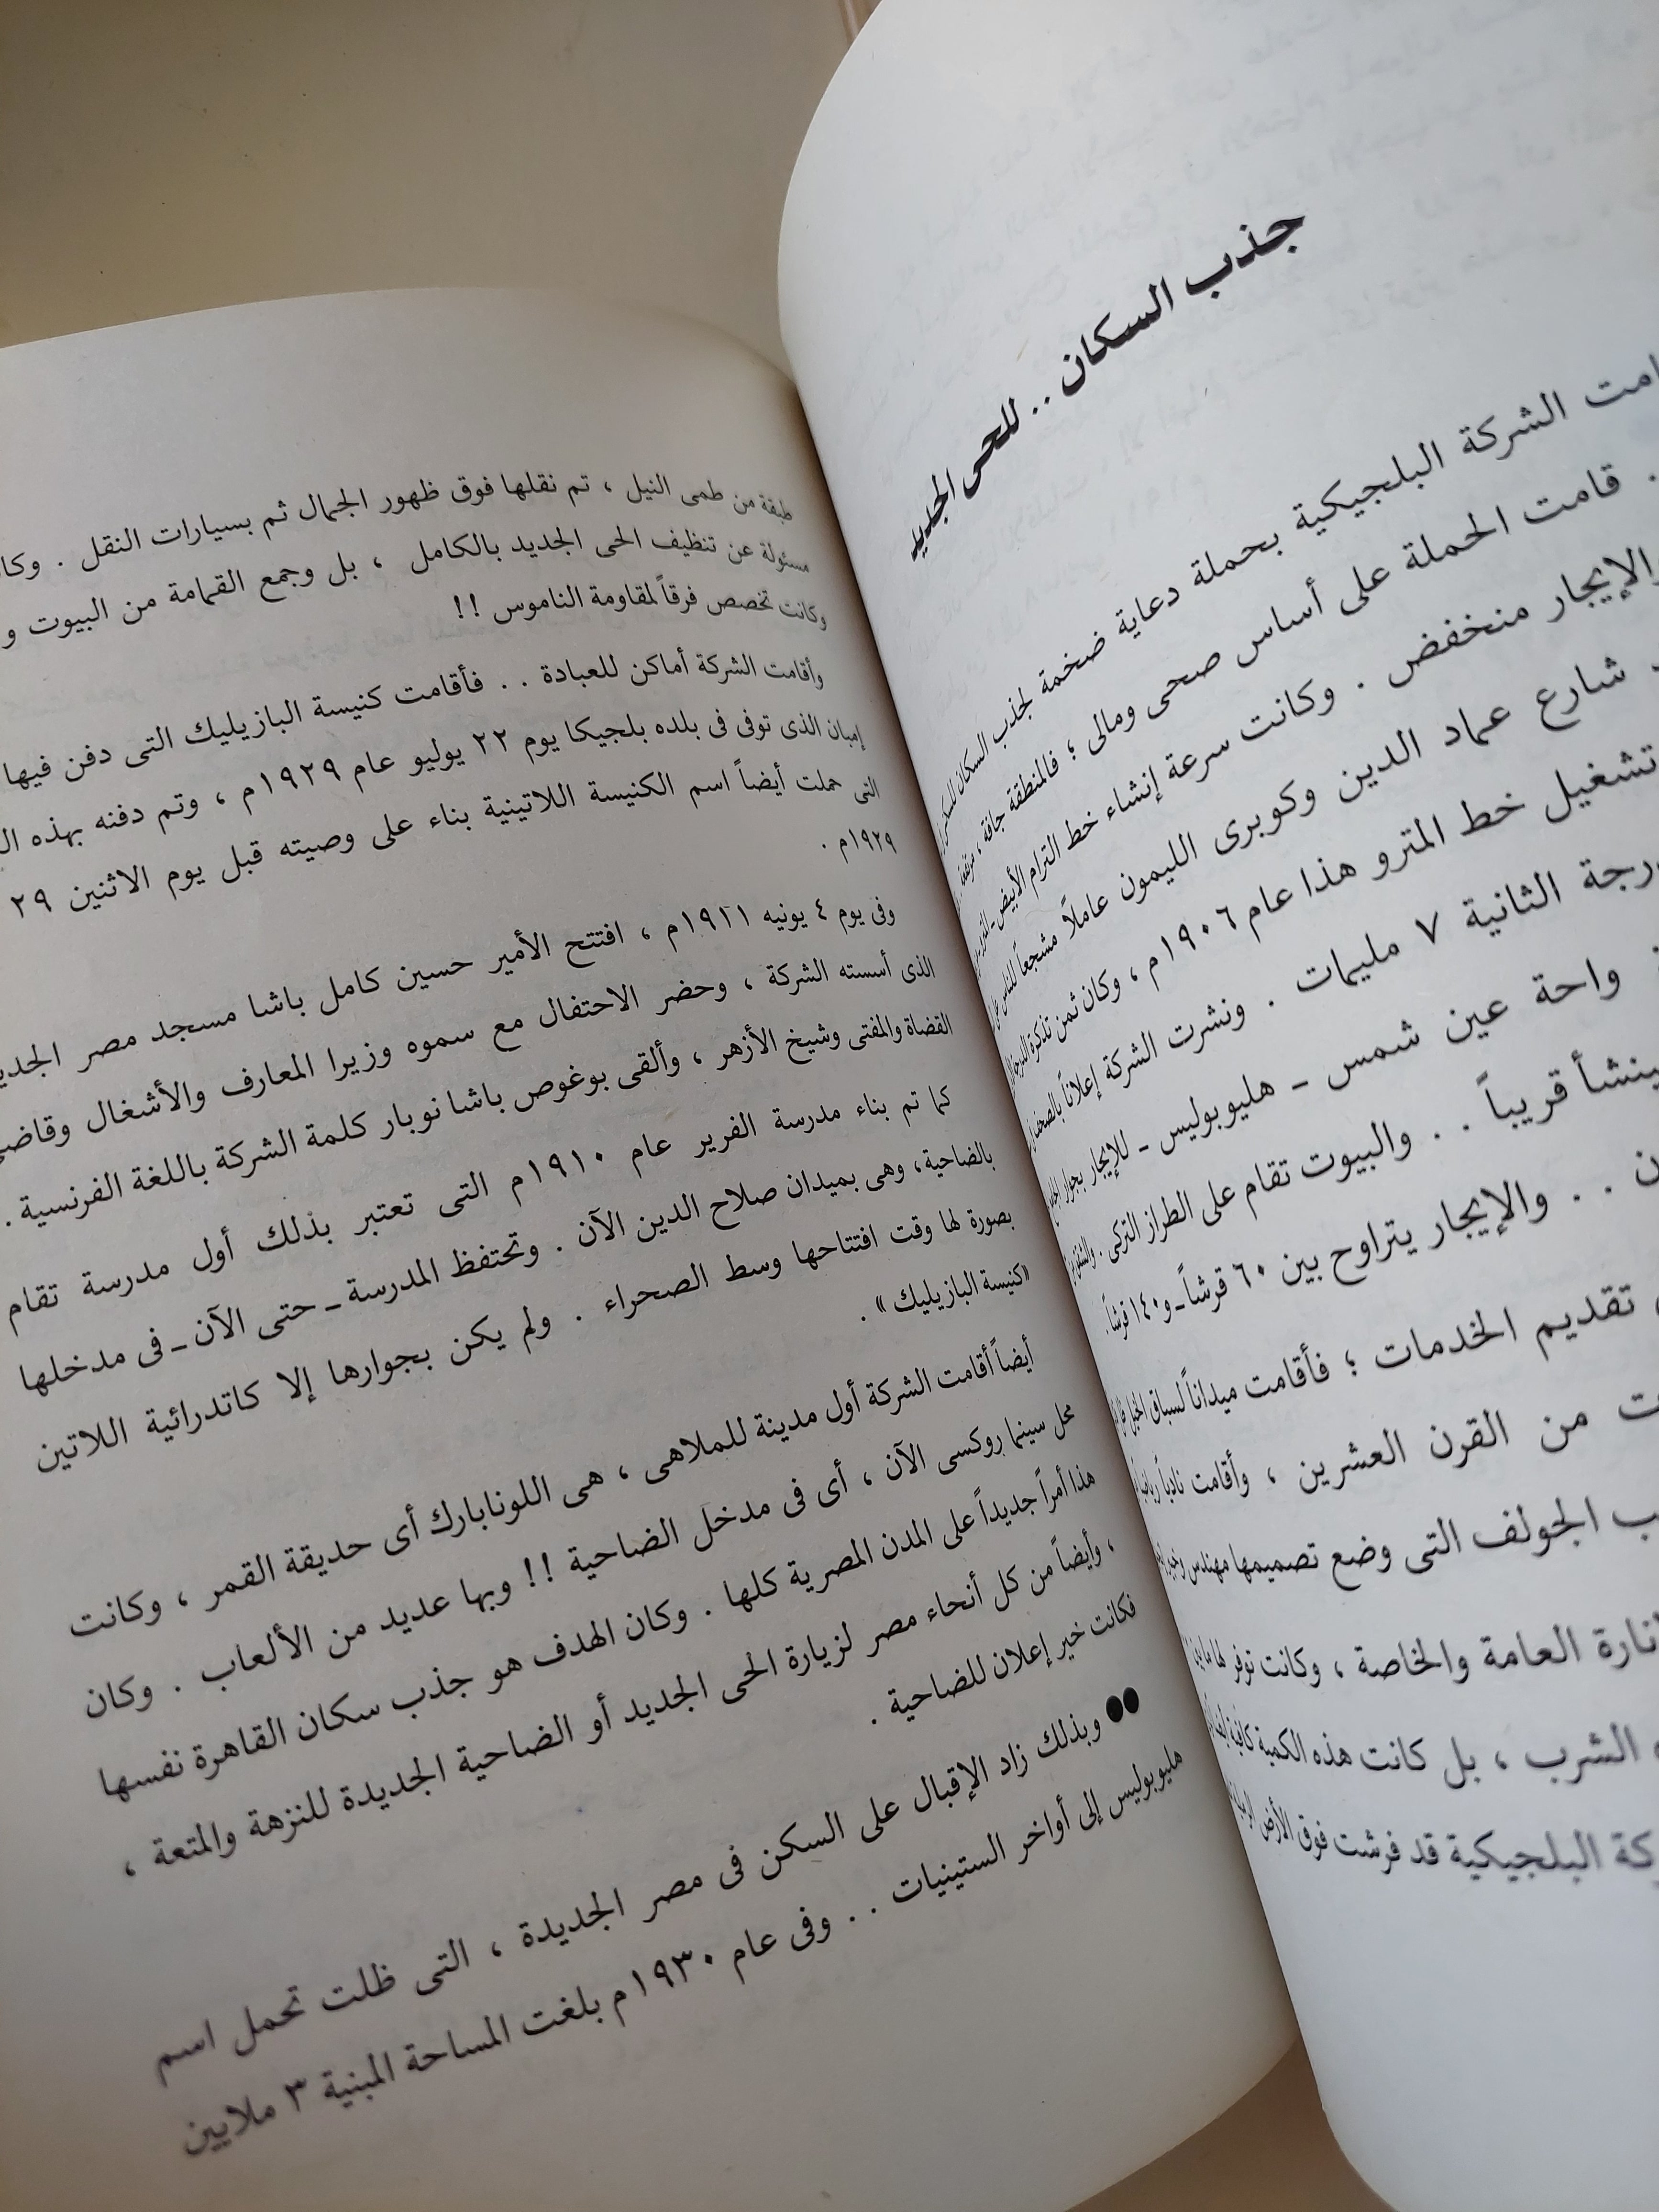 جذب السكان .. للحى الجديد
امت الشركة البلجيكية بحملة دعاية ضخمة لجذب السكان للسكن
. قامت الحملة على أساس صحى ومالى ؛ فالمنطقة جافة ، مرتفعة
والإيجار منخفض . وكانت سرعة إنشاء خط الترام الأبيض
شارع عماد الدين وكوبرى الليمون عاملاً مشجعاً للناس
تشغيل خط المترو هذا عام ١٩٠٦م ، وكان ثمن تذكرة الدرجة
رجة الثانية ٧ مليمات . ونشرت الشركة إعلاناً بالصحف
واحة عين شمس - هليوبوليس - للإيجار بجوار
ينشأ قريباً .. والبيوت تقام على الطراز التركى . والشقق
ن .. والإيجار يتراوح بين ٦٠ قرشاً - و١٤٠ قرشاً .
تقديم الخدمات ؛ فأقامت ميداناً لسباق الخيل
ت من القرن العشرين ، وأقامت نادياً رياضياً
ب الجولف التى وضع تصميمها مهندس
نارة العامة والخاصة ، وكانت توفر لها
الشرب ، بل كانت هذه الكمية كافية
كة البلجيكية قد فرشت فوق الأرض الرملية
طبقة من طمى النيل ، تم نقلها فوق ظهور الجمال ثم بسيارات النقل . وكا
مسئولة عن تنظيف الحى الجديد بالكامل ، بل وجمع القمامة من البيوت و
وكانت تخصص فرقاً لمقاومة الناموس !!
وأقامت الشركة أماكن للعبادة .. فأقامت كنيسة البازيليك التى دفن فيها
إمبان الذى توفى فى بلده بلجيكا يوم ٢٢ يوليو عام ١٩٢٩م ، وتم دفنه بهذه ال
التى حملت أيضاً اسم الكنيسة اللاتينية بناء على وصيته قبل يوم الاثنين ٢٩
١٩٢٩م .
وفى يوم ٤ يونيه ١٩١١م ، افتتح الأمير حسين كامل باشا مسجد مصر الجدي
الذى أسسته الشركة ، وحضر الاحتفال مع سموه وزيرا المعارف والأشغال وقاضى
القضاة والمفتى وشيخ الأزهر ، وألقى بوغوص باشا نوبار كلمة الشركة باللغة الفرنسية .
كما تم بناء مدرسة الفرير عام ١٩١٠م التى تعتبر بذلك أول مدرسة تقام
بالضاحية ، وهى بميدان صلاح الدين الآن . وتحتفظ المدرسة - حتى الآن - فى مدخلها
بصورة لها وقت افتتاحها وسط الصحراء . ولم يكن بجوارها إلا كاتدرائية اللاتين
«كنيسة البازيليك» .
أيضاً أقامت الشركة أول مدينة للملاهى ، هى اللونابارك أى حديقة القمر ، وكانت
محل سينما روكسى الآن ، أى فى مدخل الضاحية !! وبها عديد من الألعاب . وكان
هذا أمراً جديداً على المدن المصرية كلها . وكان الهدف هو جذب سكان القاهرة نفسها
، وأيضاً من كل أنحاء مصر لزيارة الحى الجديد أو الضاحية الجديدة للنزهة والمتعة ،
فكانت خير إعلان للضاحية .
●● وبذلك زاد الإقبال على السكن فى مصر الجديدة ، التى ظلت تحمل اسم
هليوبوليس إلى أواخر الستينيات .. وفى عام ١٩٣٠م بلغت المساحة المبنية ٣ ملايين